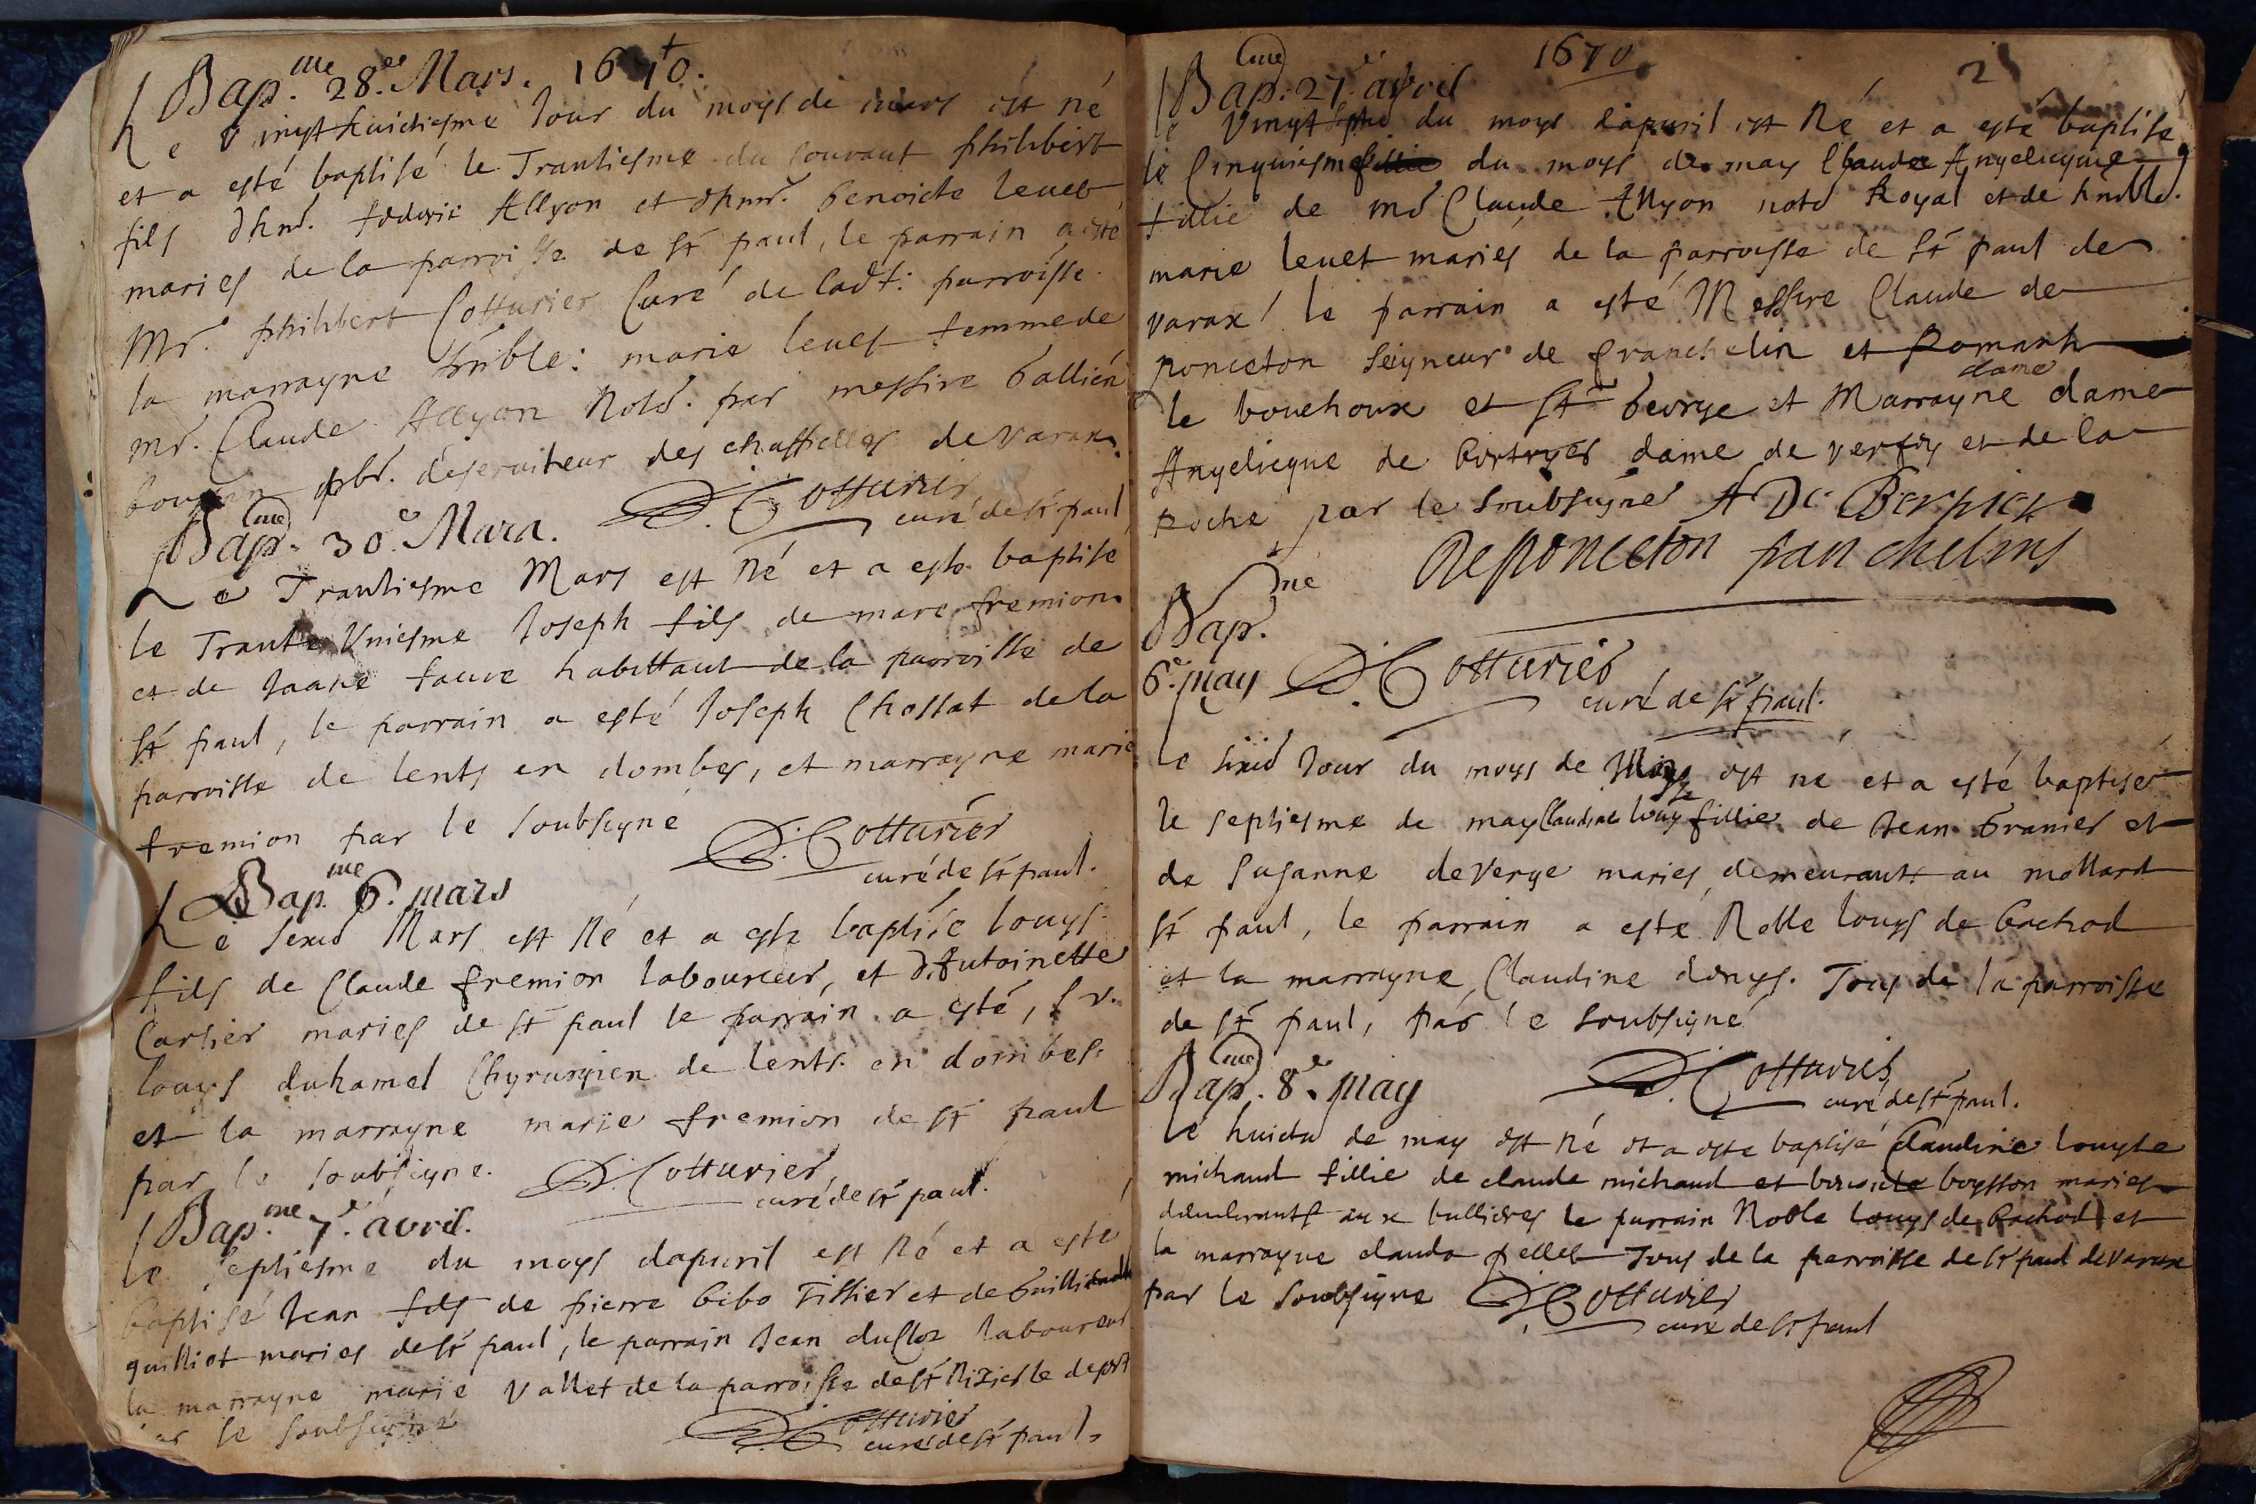 Bap.me 28.e Mars. 1670.
Le vingt huictiesme Jour du moys de mars est né
et a esté baptisé le Trantiesme du Souvant philibert
fils dhnr. foderic Allyon et dhnr. benoicte levet
mariés de la parroisse de St paul, le parrain a esté
Mr. philibert Cotturier Curé de ladt: parroisse.
la marrayne hnble: marie levet femme de
mr. Claude Allyon Notr. par messire Gallien
pbr. deserviteur des chappelles de varax.
P. Cotturier
curé de St paul
Bap.me 30.e Mars.
Le Trantiesme Mars est né et a esté baptisé
le Trante Vniesme Joseph fils de marc fremion
et de Jaane faure habittant de la parroisse de
St paul, le parrain a esté Joseph Chossat de la
parroisse de lents en dombes, et marrayne marie
fremion par le soubsigne
P. Cotturier
curé de St paul.
Bap.me 6. mars
Le sixie Mars est né et a esté baptisé louys
fils de Claude fremion laboureur, et d'Antoinette
Carlier mariés de St paul le parrain a esté, sr.
louys duhamel Chyrurgien de lents en dombes.
et la marrayne marie fremion de St paul
par le soubsigne.
P. Cotturier
curé de St paul.
Bap.me 7.e avril.
le septiesme du moys dapuril est né et a esté
baptisé Jean fils de pierre Gibo Tissier et de
guilliot mariés de St paul, le parrain Jean dusloz laboureur
la marrayne marie vallet de la parroisse de St Nizier le desert
par le soubsigné
P. Cotturier
curé de St paul.
1670
2
Bap.me 27.e avril
le vingt septie du moys dapuril est Né et a esté baptisé
le Cinquiesme du moys de may Claudee Angelicque
fillie de mr Claude Allyon notr Royal et de hnble.
marie levet mariés de la parroisse de St paul de
varax! le parrain a esté Messire Claude de
ponceton seigneur de franchelin et Romank
le bouchoux et St George et Marrayne dame
dame
Angelicque de dame de verfey et de la
Roche par le soubsigné A De Berpiek
De Ponceton franchelins
Bap.me
6.e may
P. Cotturier
curé de St paul.
le sixie Jour du moys de May est né et a esté baptisé
le septiesme de may Claudine louyse fillie de Jean Granier et
de Susanne deverge mariés demeurant au mollard
St paul, le parrain a esté Noble louys de Gachod
et la marrayne Claudine denys. Tous de la parroisse
de St paul, par le soubsigné
P. Cotturier
curé de St paul.
Bap.me 8.e may
le huicte de may est né et a esté baptisé Claudine louyse
michaud fillie de claude michaud et benoicte boysson mariés
demeurants aux bullieres le parrain Noble louys de Gachod et
la marrayne clauda pellet Tous de la parroisse de St paul de varax
par le soubsigne
P. Cotturier
curé de St paul